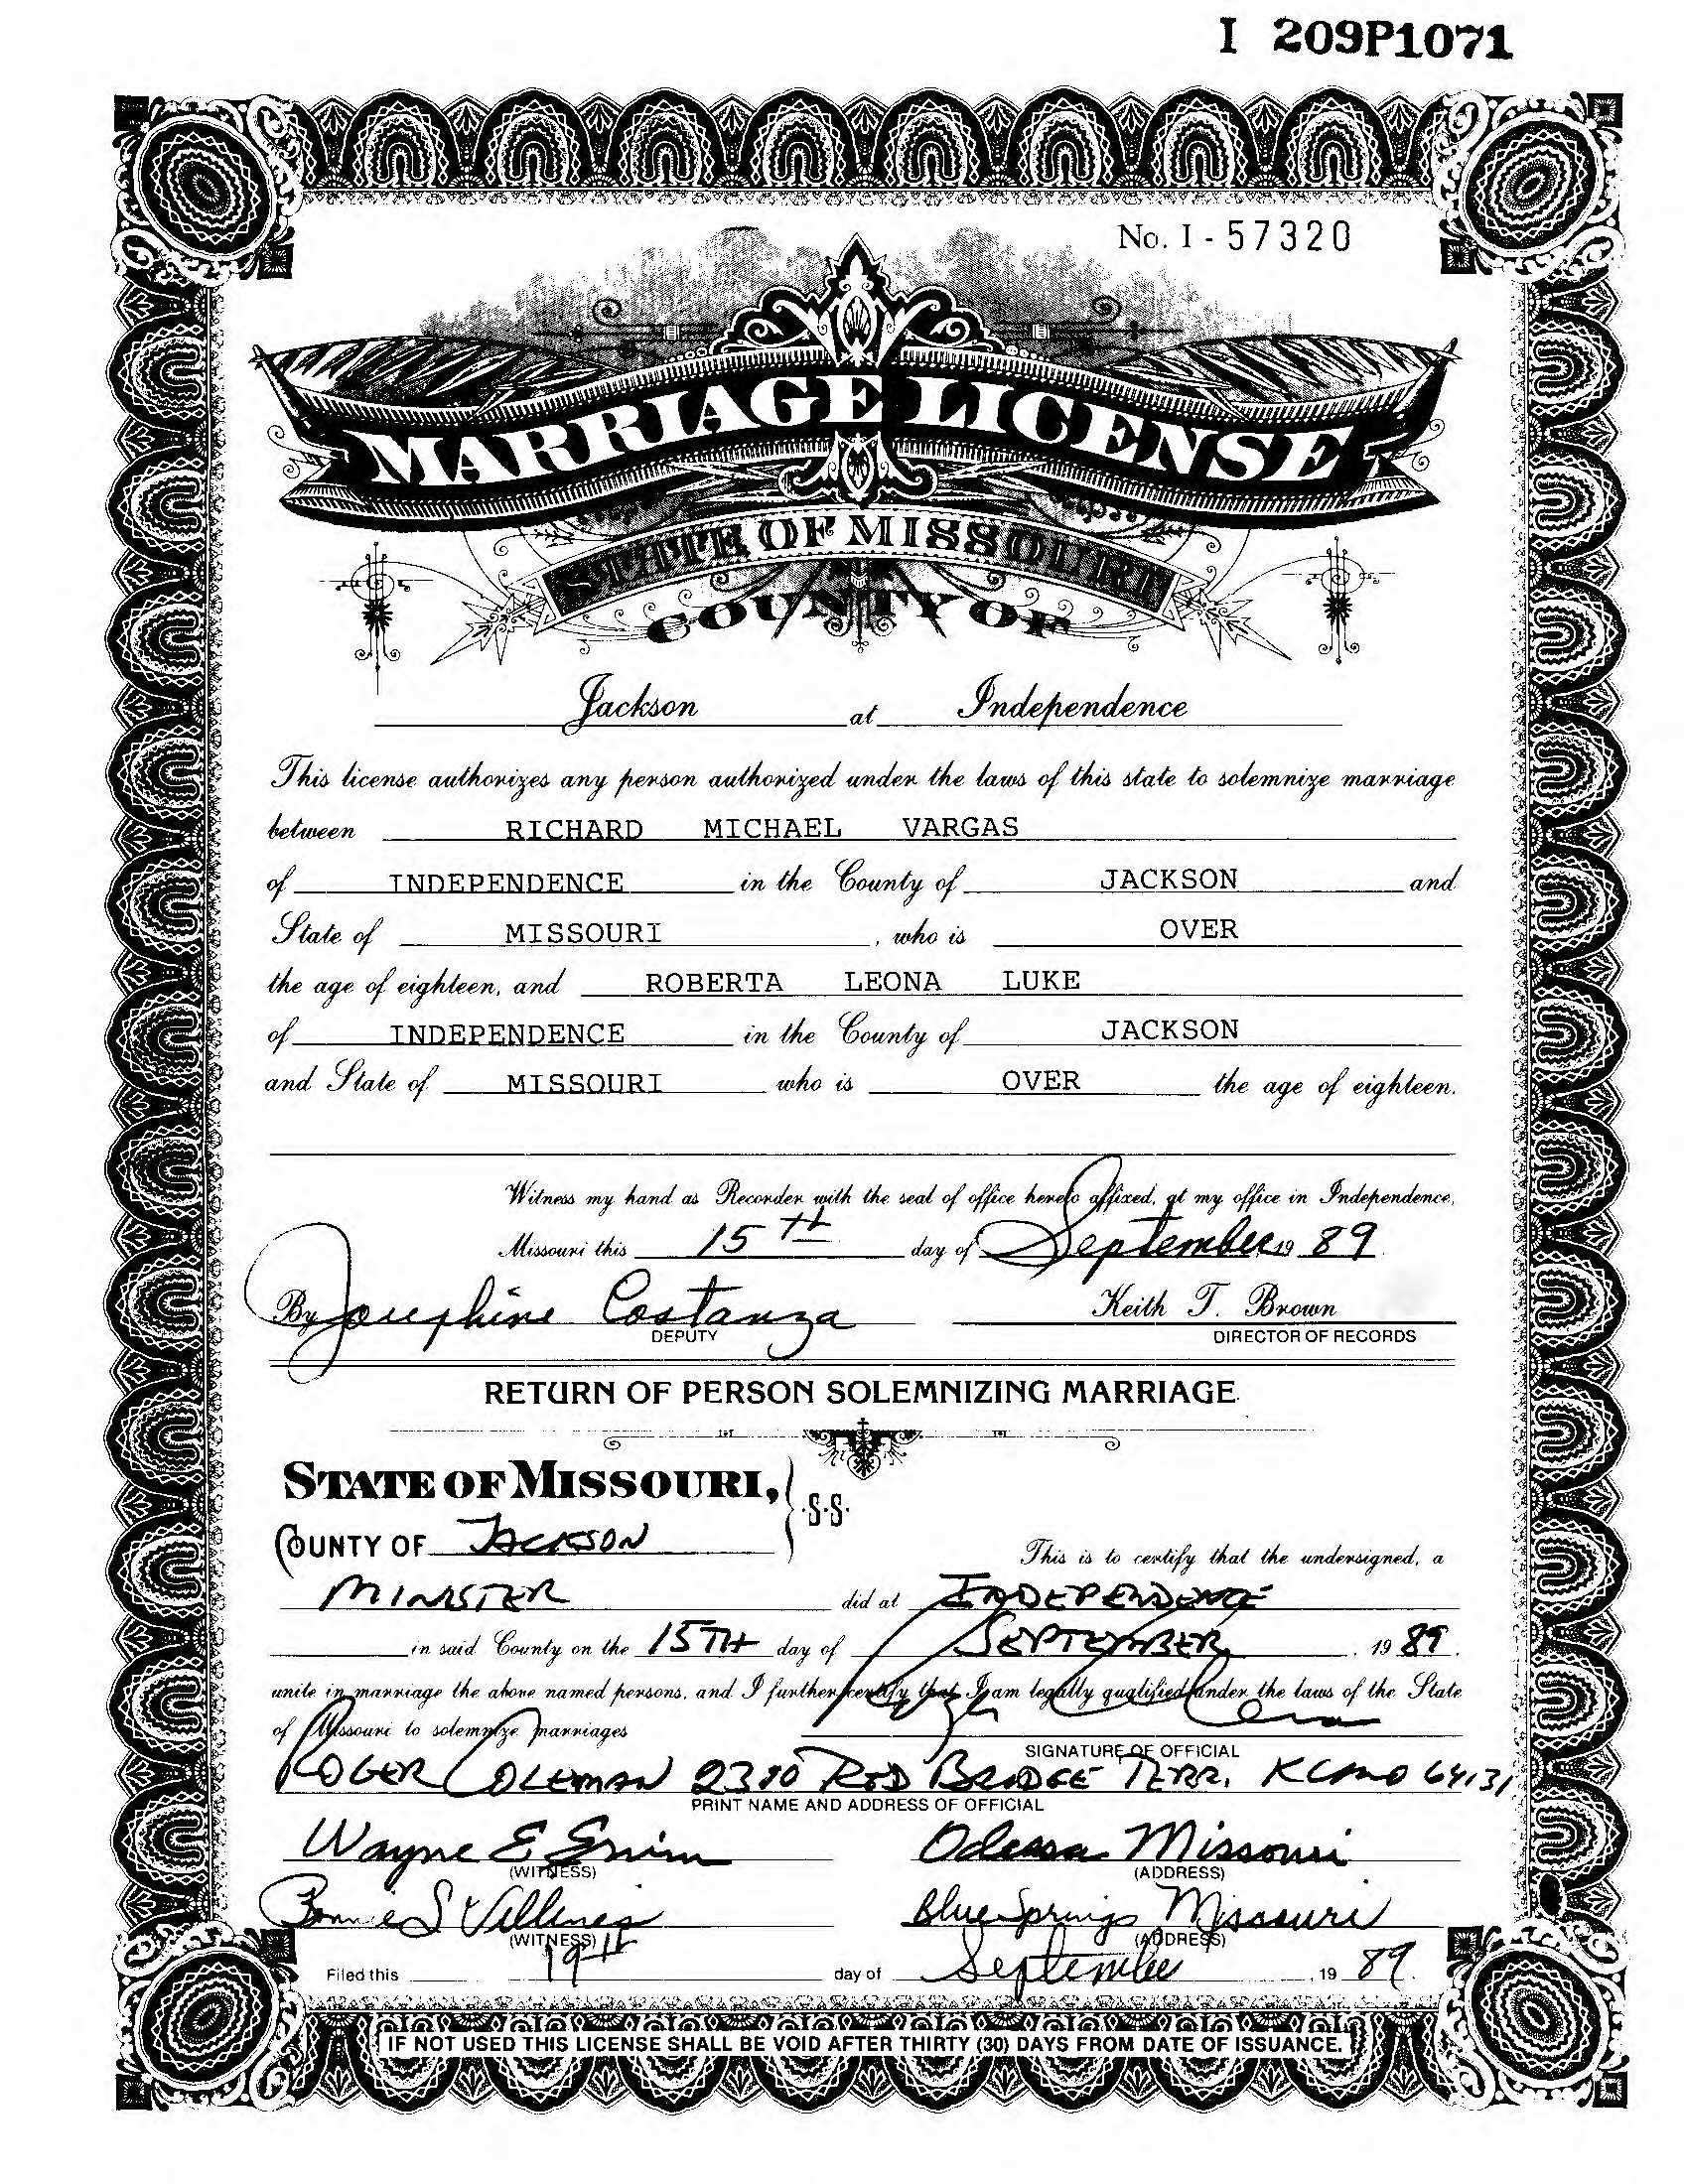 I 209P1071
No. I - 57320
MARRIAGE LICENSE
STATE OF MISSOURI
COUNTY OF
Jackson at Independence
This license authorizes any person authorized under the laws of this state to solemnize marriage
between RICHARD MICHAEL VARGAS
of INDEPENDENCE in the County of JACKSON and
State of MISSOURI, who is OVER
the age of eighteen, and ROBERTA LEONA LUKE
of INDEPENDENCE in the County of JACKSON
and State of MISSOURI who is OVER the age of eighteen.
Witness my hand as Recorder with the seal of office hereto affixed, at my office in Independence,
Missouri this 15th day of September 19 89
By Josephine Costanza Keith T. Brown
DEPUTY DIRECTOR OF RECORDS
RETURN OF PERSON SOLEMNIZING MARRIAGE
STATE OF MISSOURI,
S.S.
COUNTY OF JACKSON
This is to certify that the undersigned, a
MINISTER did at INDEPENDENCE
in said County on the 15TH day of SEPTEMBER, 19 89.
unite in marriage the above named persons, and I further certify that I am legally qualified under the laws of the State
of Missouri to solemnize marriages
SIGNATURE OF OFFICIAL
ROGER COLEMAN RED BRIDGE TERR. KCMO 64131
PRINT NAME AND ADDRESS OF OFFICIAL
Wayne E Odessa Missouri
(WITNESS) (ADDRESS)
Bonnie S Villines Blue Springs Missouri
(WITNESS) (ADDRESS)
Filed this 19th day of September, 19 89.
IF NOT USED THIS LICENSE SHALL BE VOID AFTER THIRTY (30) DAYS FROM DATE OF ISSUANCE.